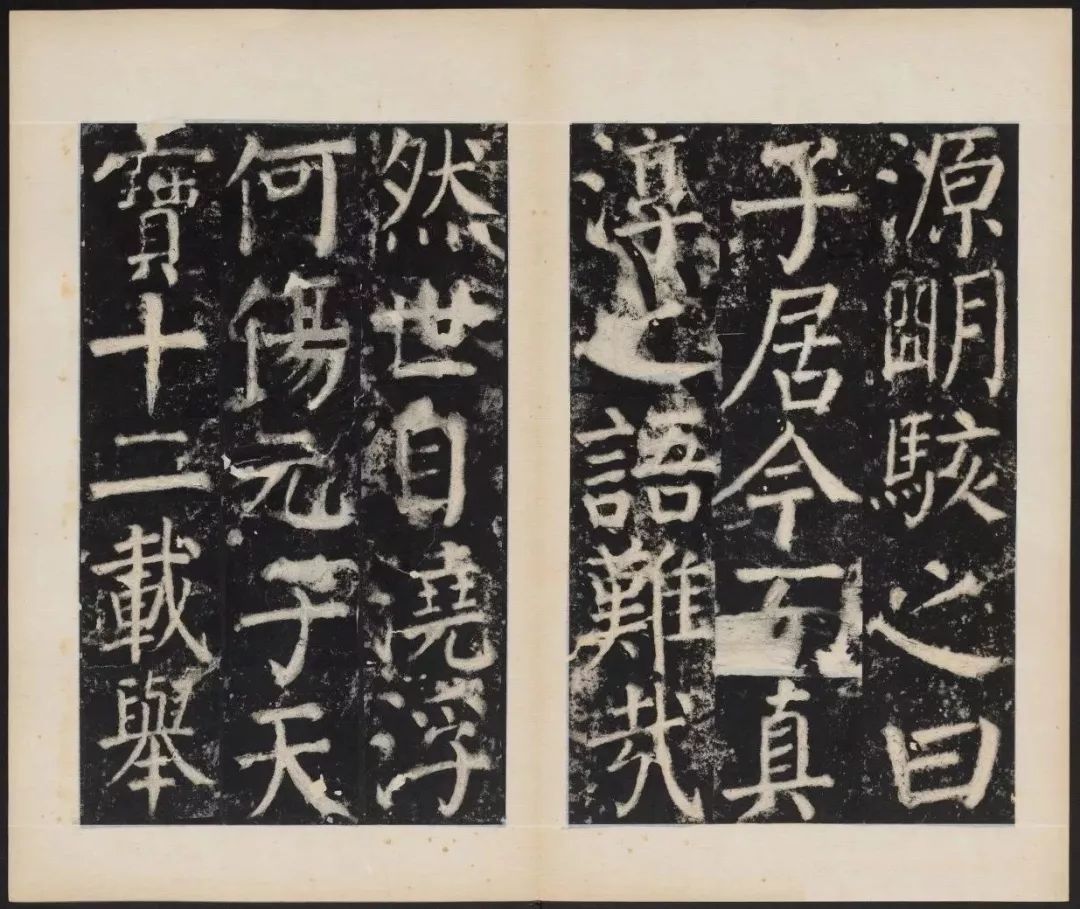 源朙駭之曰
子居今而真
淳之語難哉
然世自澆浮
何傷元子天
寶十二載舉